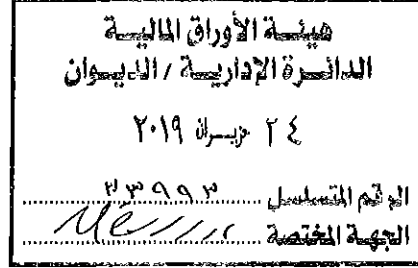 هيئة الأوراق المالية
الدائرة الإدارية / الديوان
٢٤ حزيران ٢٠١٩
الرقم المتسلسل
الجهة المختصة